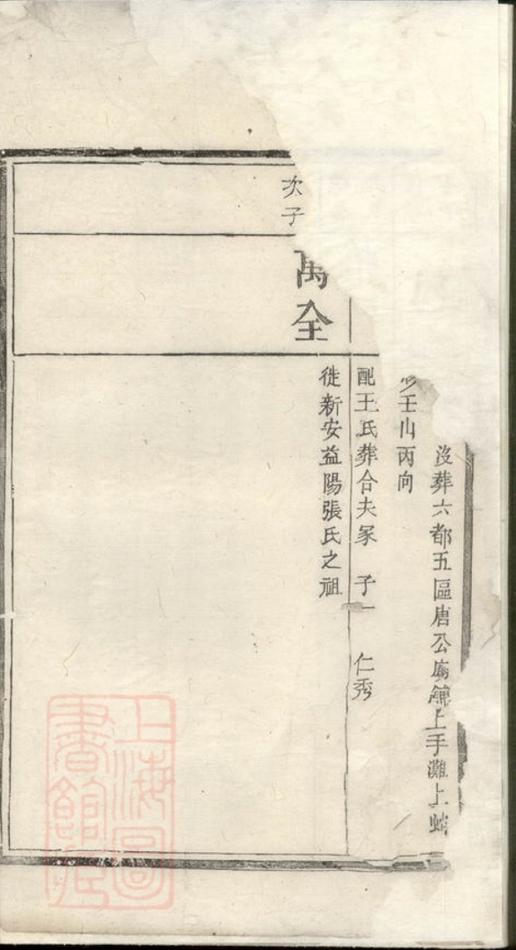 沒葬六都五區唐公廟鋪上手灘上蛇
形壬山丙向
配王氏葬合夫冢 子一 仁秀
次子
萬全
徙新安益陽張氏之祖
上海圖書館藏